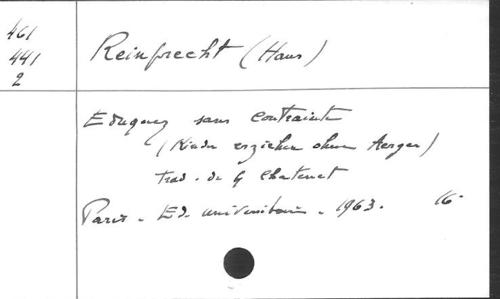 461
441
2
Reinprecht (Hans)
Eduquez sans contrainte
(Kinder erziehen ohne Aerger)
Trad. de G Chatenet
Paris - Ed. universitaires. 1963. 16-